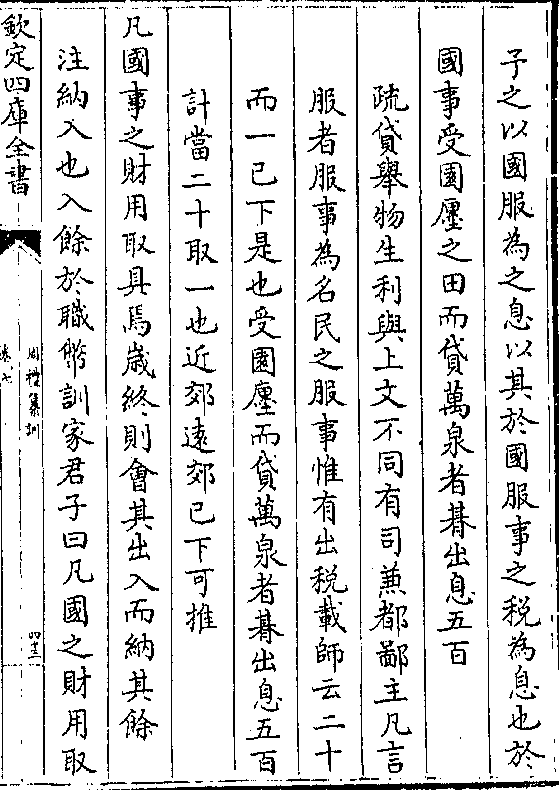 子之以國服為之息以其於國服事之稅為息也於
國事受園廛之田而貸萬泉者朞出息五百
疏貸舉物生利與上文不同有司兼都鄙主凡言
服者服事為名民之服事惟有出稅載師云二十
而一已下是也受園廛而貸萬泉者朞出息五百
計當二十取一也近郊遠郊已下可推
凡國事之財用取具焉歲終則會其出入而納其餘
注納入也入餘於職幣訓家君子曰凡國之財用取
欽定四庫全書
周禮纂訓
卷七
四十三